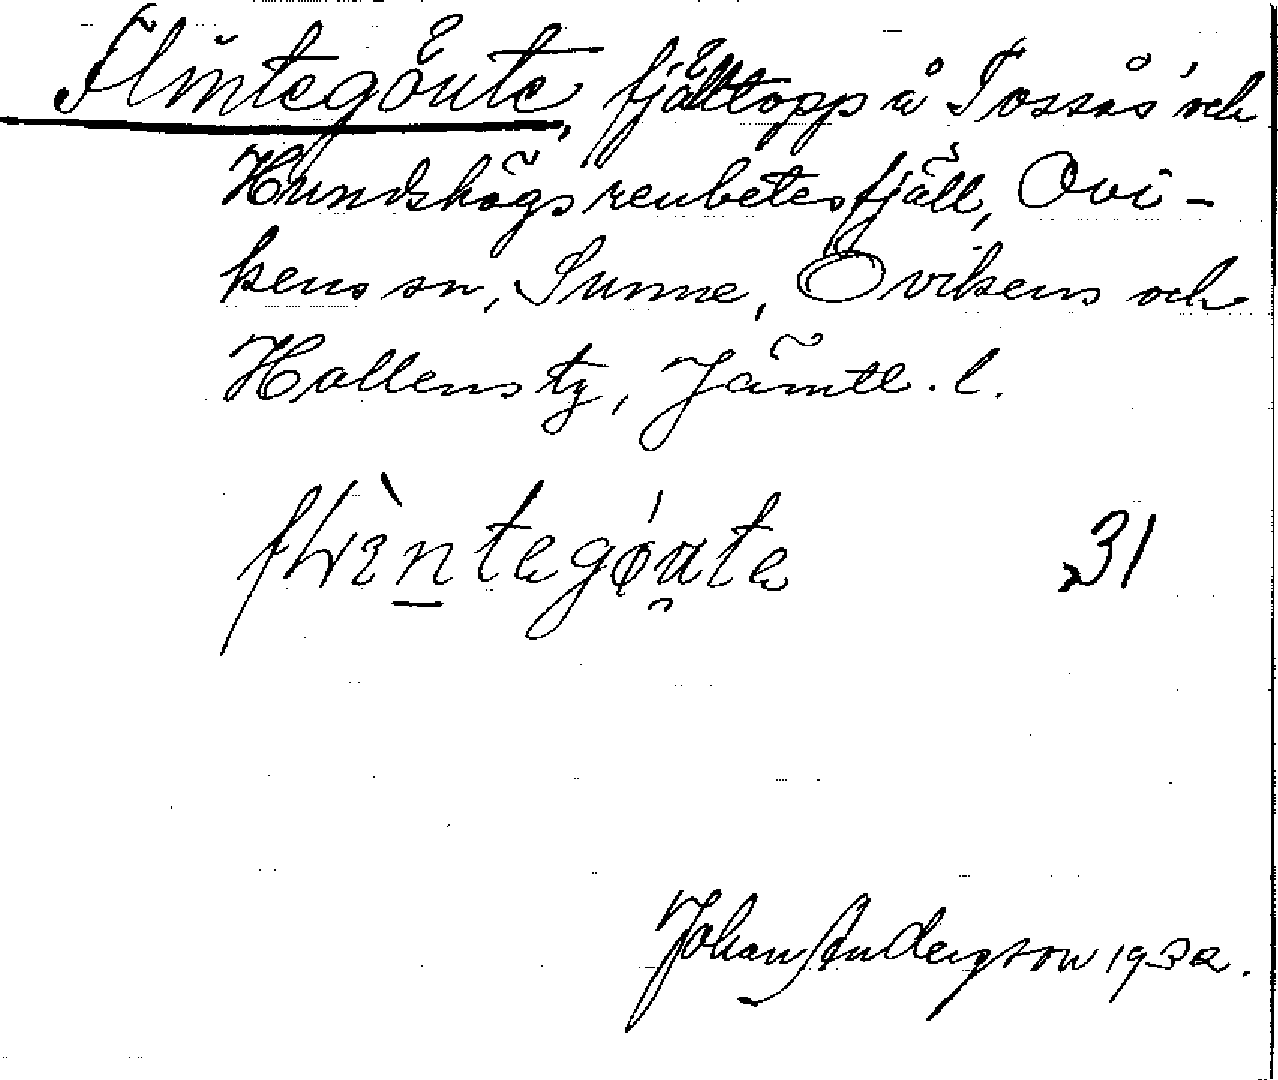 Flintegånte, fjälltopp å Tossås och
Hundshögs renbetesfjäll, Ovi-
kens sn, Sunne, Ovikens och
Hallens tg, Jämtl. l.
31
Johan Anderson 1932.